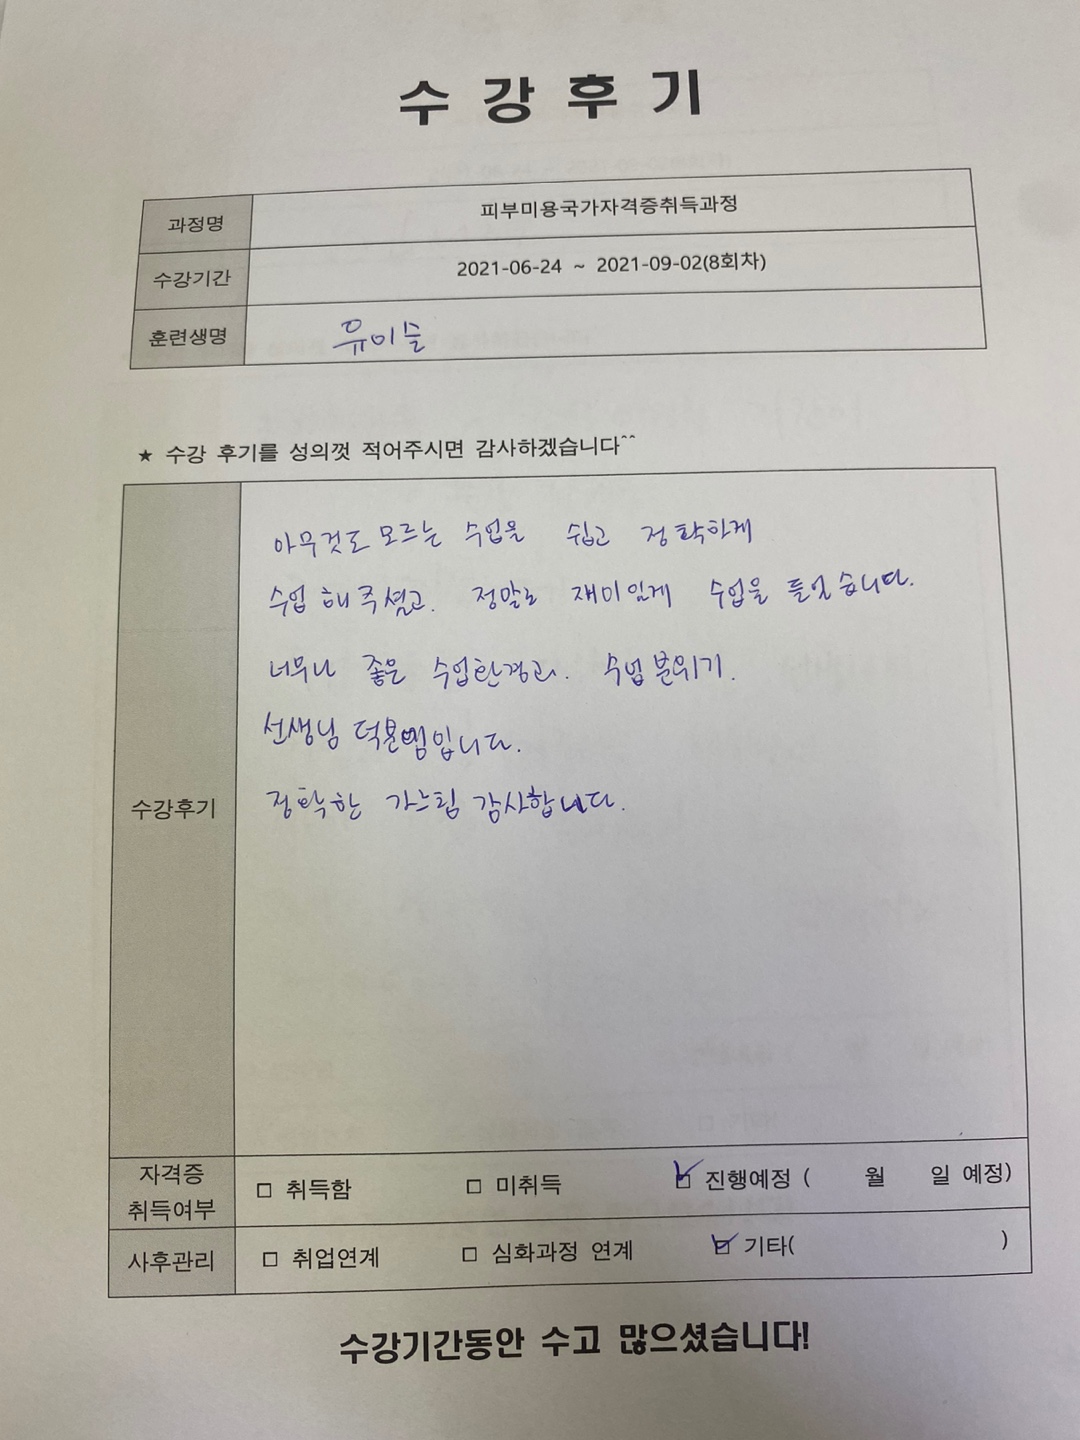 수 강 후 기
과정명 피부미용국가자격증취득과정
수강기간 2021-06-24 ~ 2021-09-02(8회차)
훈련생명 유이슬
★ 수강 후기를 성의껏 적어주시면 감사하겠습니다^^
아무것도 모르는 수업을 쉽고 정확하게
수업 해주셨고. 정말로 재미있게 수업을 들었습니다.
너무나 좋은 수업환경과. 수업분위기.
선생님 덕분입니다.
수강후기
정확한 가르침 감사합니다.
자격증 취득여부 □ 취득함 □ 미취득 ☑ 진행예정 ( 월 일 예정)
사후관리 □ 취업연계 □ 심화과정 연계 ☑ 기타( )
수강기간동안 수고 많으셨습니다!